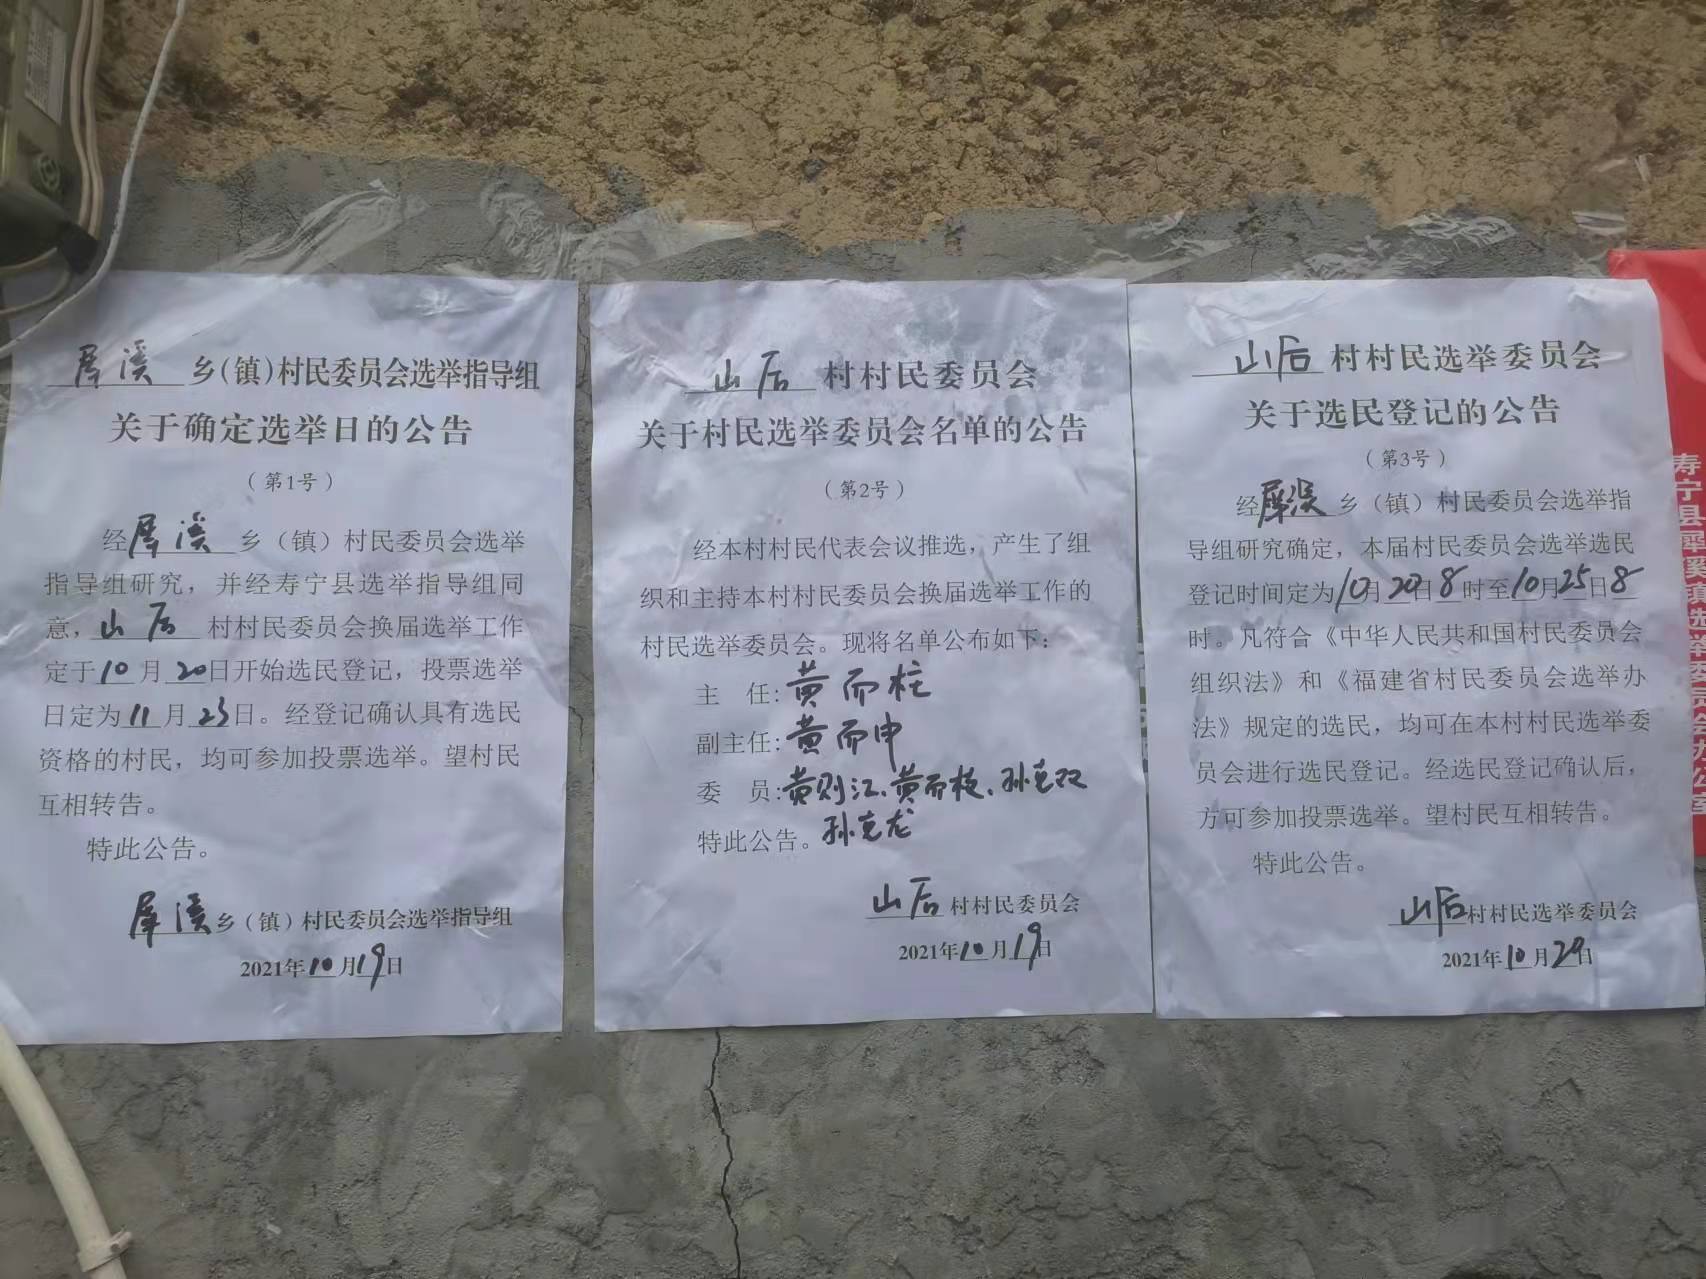 犀溪乡(镇)村民委员会选举指导组
关于确定选举日的公告
(第1号)
经犀溪乡(镇)村民委员会选举
指导组研究,并经寿宁县选举指导组同
意,山后村村民委员会换届选举工作
定于10月20日开始选民登记,投票选举
日定为11月23日。经登记确认具有选民
资格的村民,均可参加投票选举。望村民
互相转告。
特此公告。
犀溪乡(镇)村民委员会选举指导组
2021年10月19日
山后村村民委员会
关于村民选举委员会名单的公告
(第2号)
经本村村民代表会议推选,产生了组
织和主持本村村民委员会换届选举工作的
村民选举委员会。现将名单公布如下:
主 任:黄而柱
副主任:黄而申
委 员:黄则江、黄而枝、孙克双
特此公告。孙克龙
山后村村民委员会
2021年10月19日
山后村村民选举委员会
关于选民登记的公告
(第3号)
经犀溪乡(镇)村民委员会选举指
导组研究确定,本届村民委员会选举选民
登记时间定为10月20日8时至10月25日8
时。凡符合《中华人民共和国村民委员会
组织法》和《福建省村民委员会选举办
法》规定的选民,均可在本村村民选举委
员会进行选民登记。经选民登记确认后,
方可参加投票选举。望村民互相转告。
特此公告。
山后村村民选举委员会
2021年10月20日
寿宁县犀溪镇选举委员会办公室